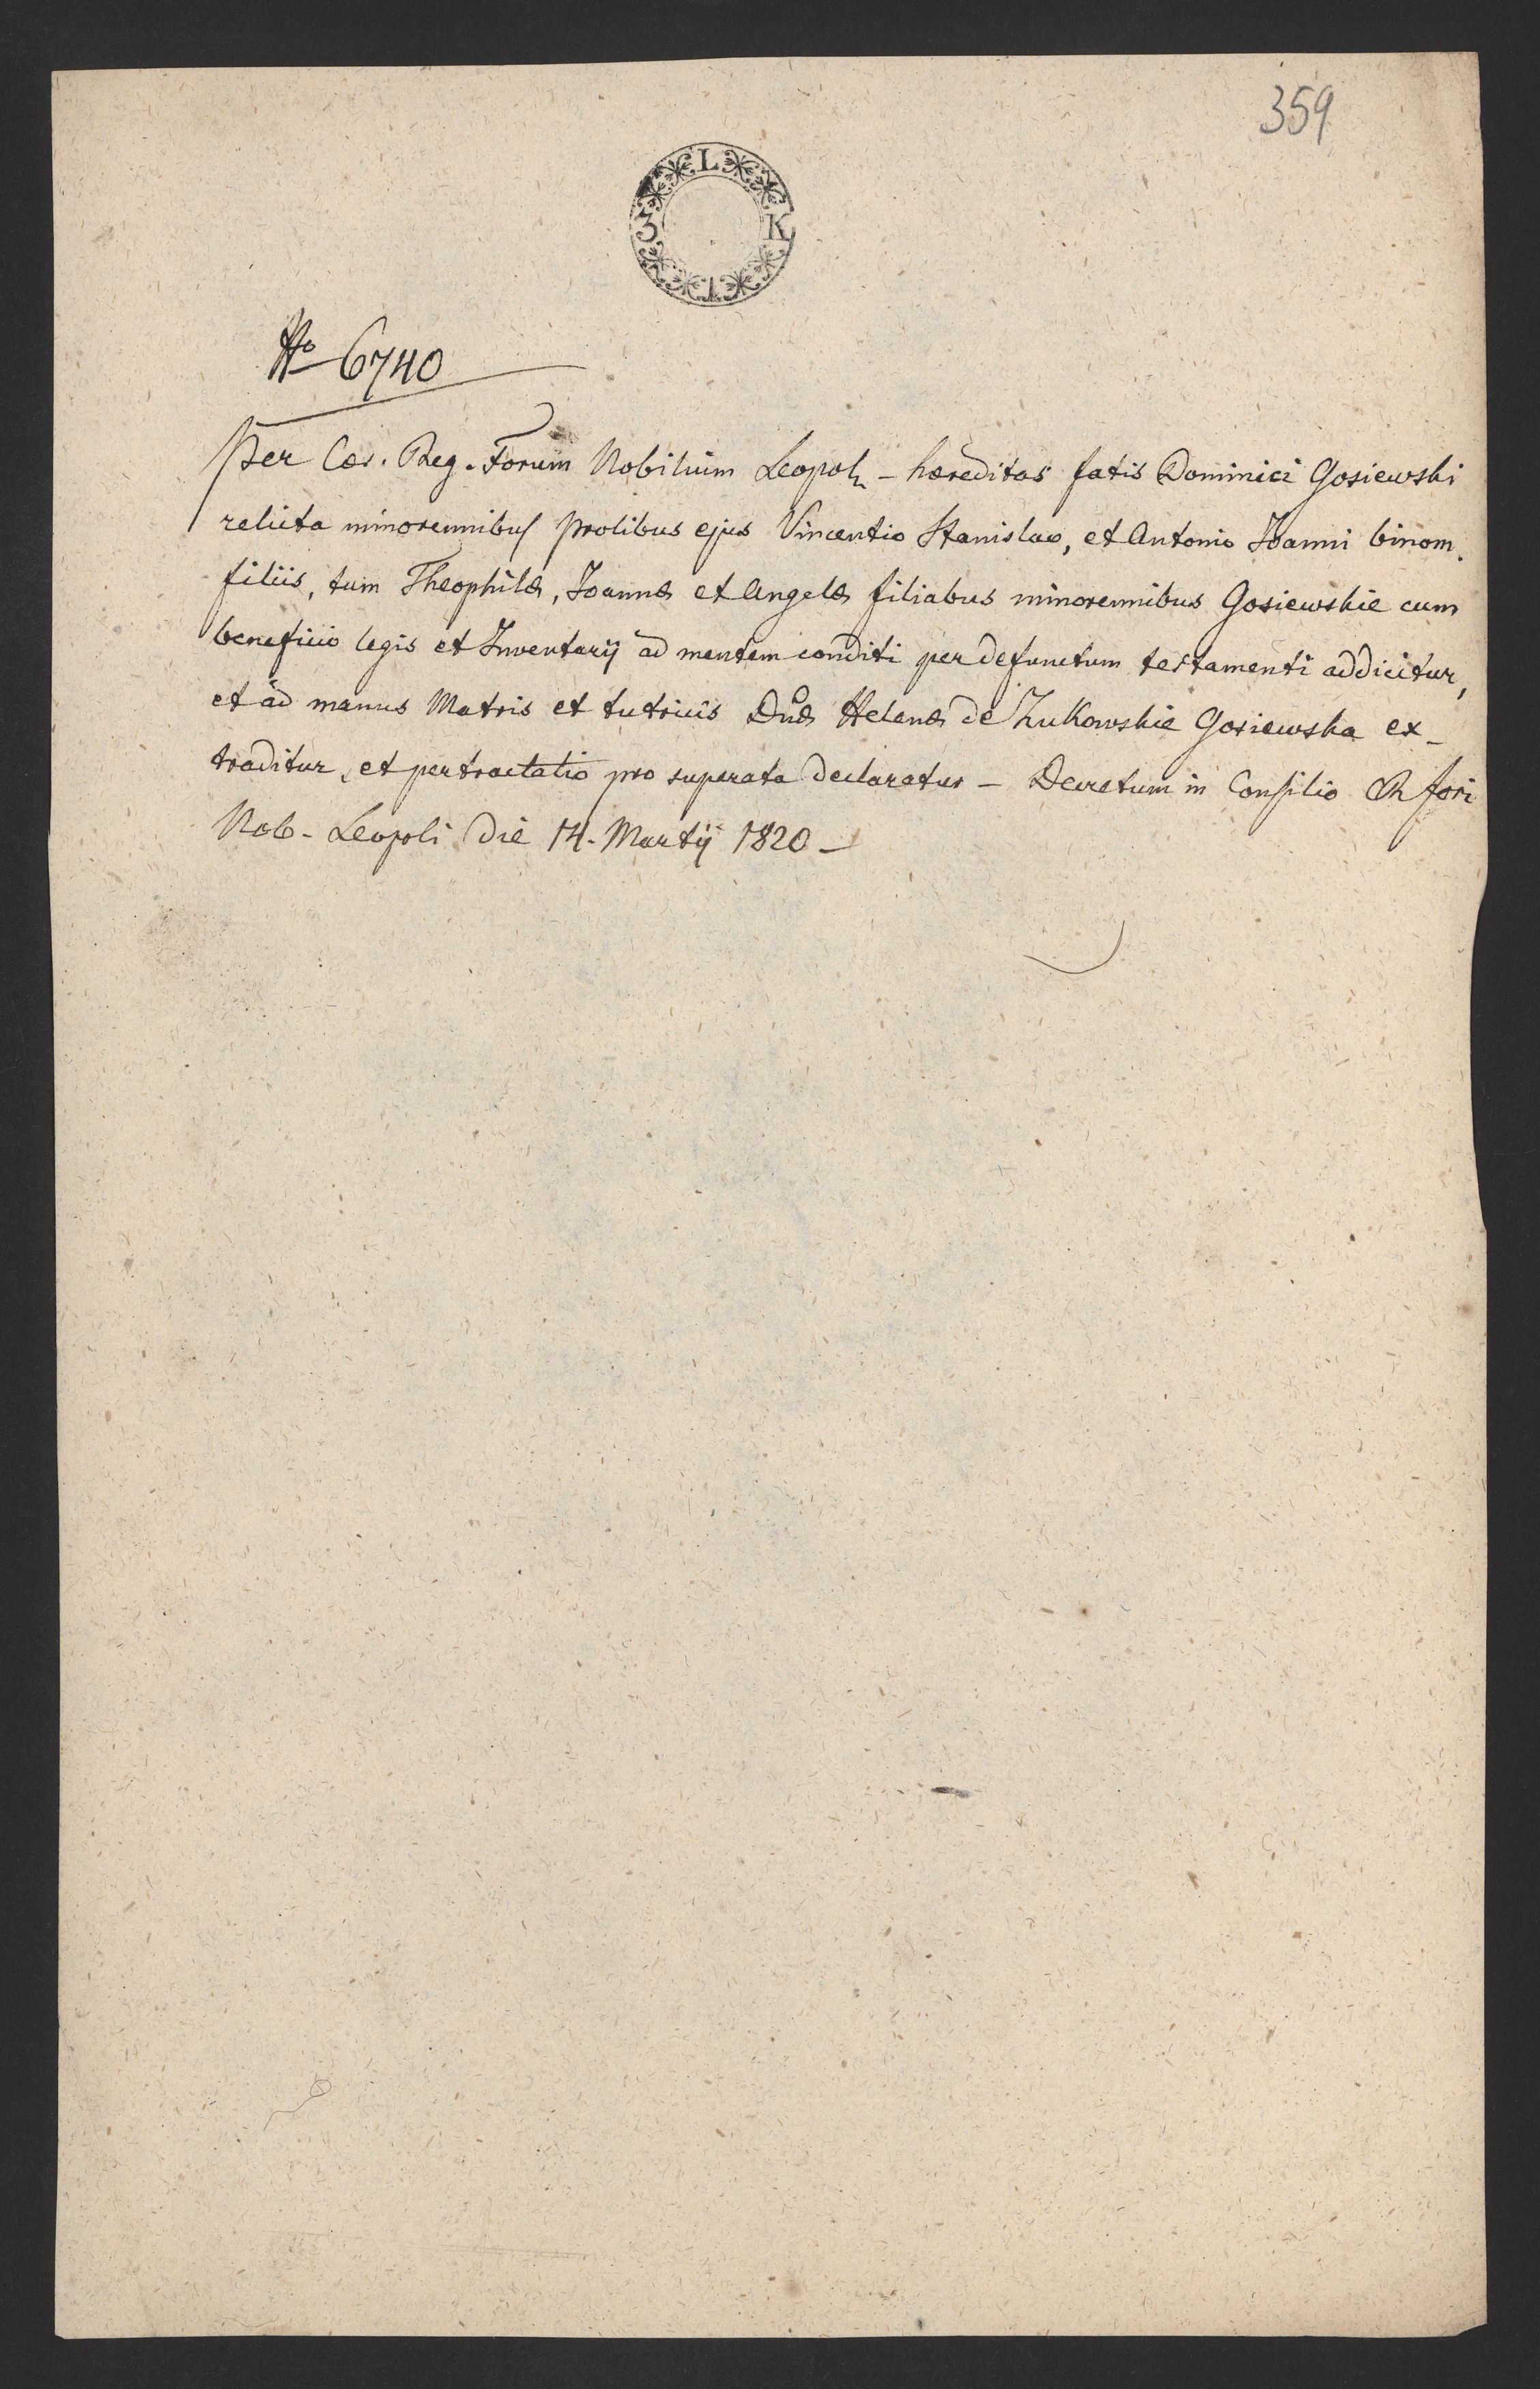 359
L
3 K
No 6740
Per Cæs. Reg. Forum Nobilium Leopol. – hæreditas fatis Dominici Gosiewski
relicta minorennibus prolibus ejus Vincentio Stanislao, et Antonio Joanni binom.
filiis, tum Theophilæ, Joannæ et Angelæ filiabus minorennibus Gosiewskie cum
beneficio legis et Inventarij ad mentem conditi per defunctum testamenti addicitur,
et ad manus Matris et tutricis Dnæ Helenæ de Zukowskie Gosiewska ex-
traditur, et pertractatio pro superata declaratur – Decretum in Consilio CR fori
Nob – Leopoli die 14. Martij 1820 –